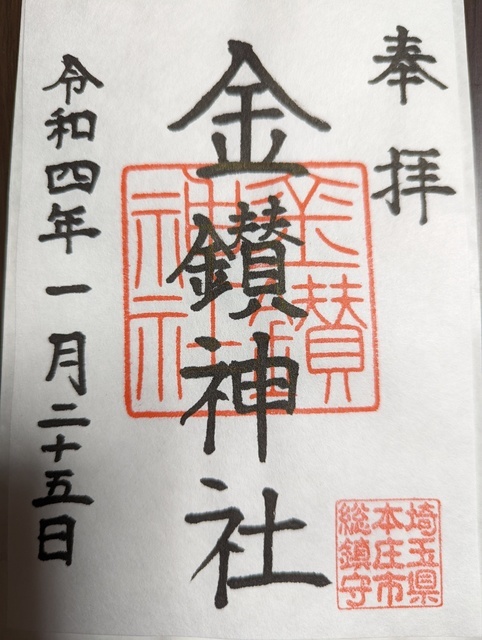 奉拝
金鑚神社
金鑚神社
埼玉県
本庄市
総鎮守
令和四年一月二十五日